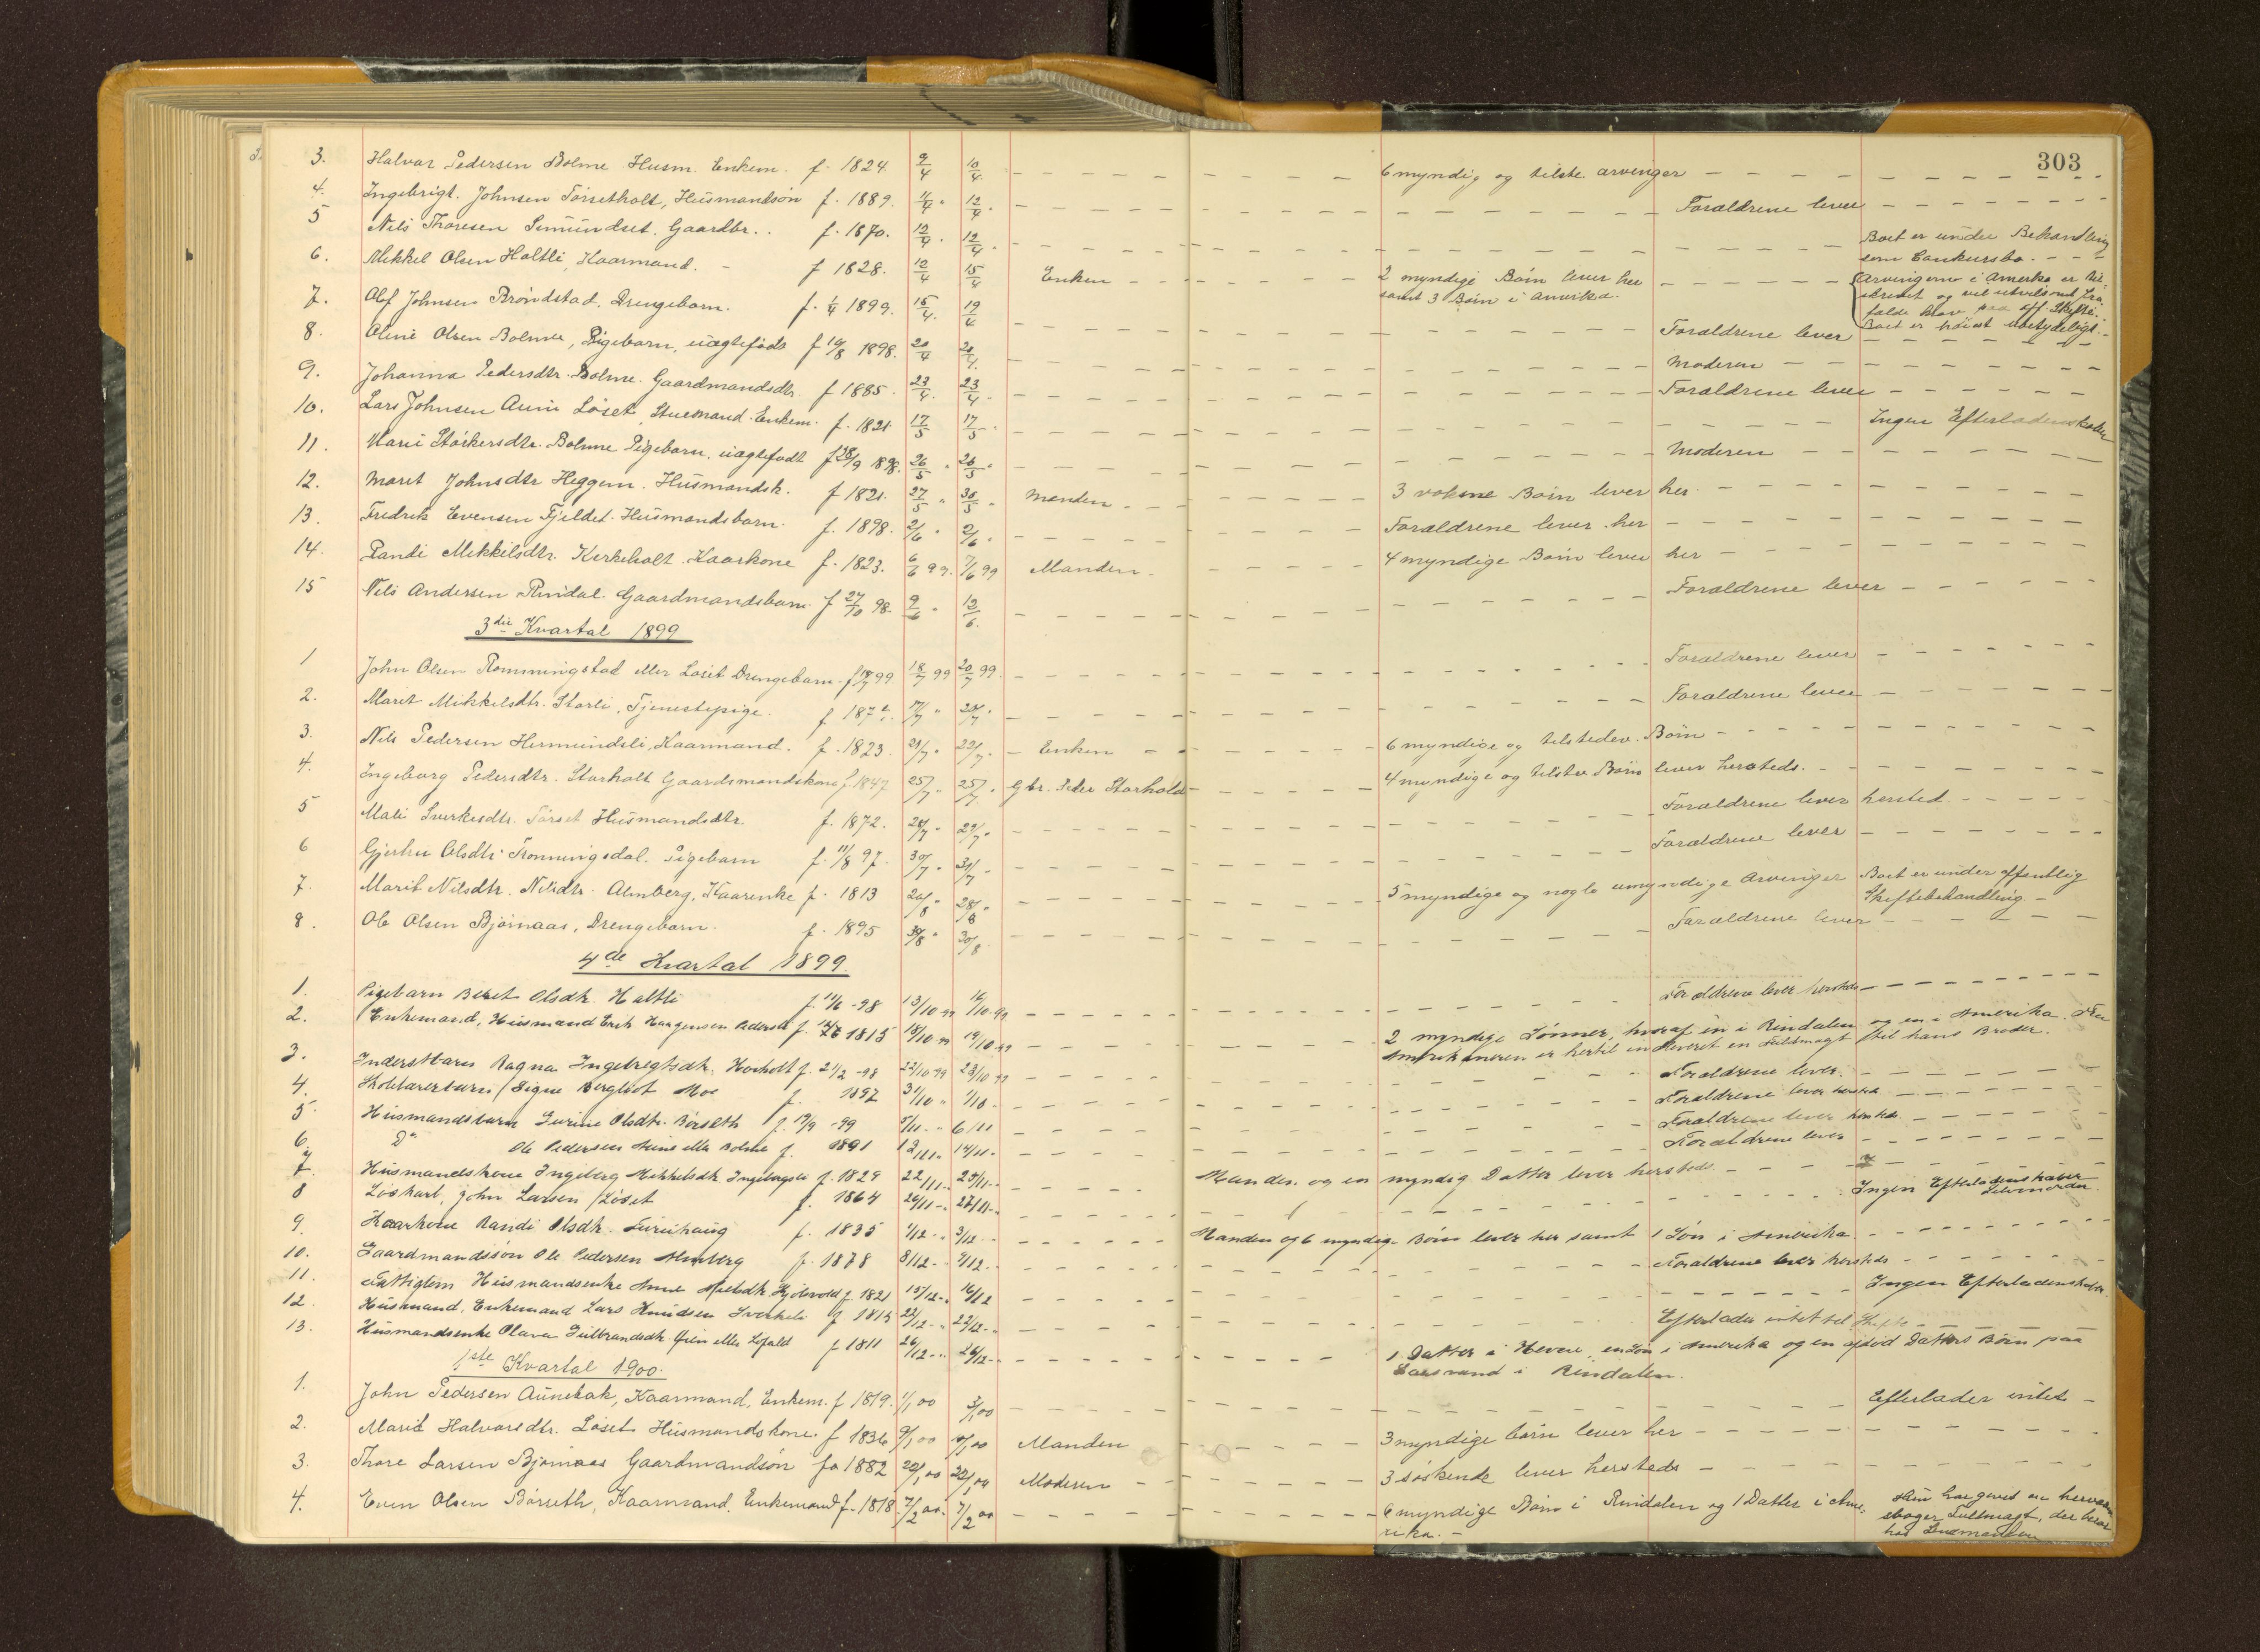 303
3. Halvar Pedersen Bolme Husm. Enkem. f. 1824. 9/4 10/4. 6 myndig og tilste. arvinger
4. Ingebrigt Johnsen Törsetholt, Husmandsön f. 1889. 11/4 " 12/4. Forældrene lever
5 Nils Thoresen Simundset. Gaardbr. f. 1870. 12/4. 12/4. Boet er under Behandling
som Conkursbo.
6. Mikkel Olsen Holtli, Kaarmand. f 1828. 12/4 15/4 Enken 2 myndige Börn lever her Arvingerne i Amerika er
samt 3 Börn i Amerika. og vil utvilsomt fra
falde krav paa off. Skifte.
Boet er höist ubetydeligt.
7. Olof Johnsen Bröndstad. Drengebarn. f. 1/4 1899. 15/4. 19/4 Forældrene lever
8. Oline Olsen Bolme, Pigebarn, uægtefödt f 19/8 1898. 20/4 20/4. Moderen
9. Johanna Pedersdtr. Bolme. Gaardmandsdtr. f 1885. 23/4. 23/4. Forældrene lever
10. Lars Johnsen Aune Löset, Stuemand. Enkem. f. 1821. 17/5 17/5. Ingen Efterladenskaber
11. Marie Störkersdtr. Bolme Pigebarn, uægtefödt f 28/9 1898. 26/5 " 26/5 " Moderen
12. Marit Johnsdtr Heggem. Husmandsk. f 1821. 27/5 " 30/5 " Manden 3 voksne Börn lever her
13. Fredrik Evensen Fjeldet. Husmandsbarn. f. 1898. 2/6 " 2/6 " Forældrene lever her
14. Randi Mikkilsdtr. Kirkeholt. Kaarkone f. 1823. 6/6 99. 7/6 99 Manden. 4 myndige Börn lever her
15 Nils Andersen Rindal. Gaardmandsbarn. f 27/10 98. 9/6 " 12/6. Forældrene lever
3die Kvartal 1899
1 John Olsen Romningstad eller Löset Drengebarn. f 18/7 99 18/7 99 20/7 99. Forældrene lever
2. Marit Mikkelsdtr. Storli, Tjenestepige. f 187 17/7 " 20/7. Forældrene lever
3. Nils Pedersen Hermundsli, Kaarmand. f. 1823. 21/7 " 22/7. Enken 6 myndige og tilstedev. Börn
4. Ingeborg Pedersdtr. Storholt Gaardsmandskone f. 1847 25/7 " 25/7. Gbr. Peder Storholt 4 myndige og tilstv. Börn lever hersteds.
5 Mali Sverkesdtr. Törset Husmandsdtr. f. 1872. 28/7 " 29/7 " Forældrene lever hersted
6 Gjertru Olsdtr Tronningsdal. Pigebarn f. 11/8 97. 30/7 " 31/7 " Forældrene lever
7. Marit Nilsdtr. Nilsdtr. Almberg. Kaarenke f. 1813 20/8 " 28/8 " 5 myndige og nogle umyndige Arvinger Boet er under offentlig
Skiftebehandling.
8. Ole Olsen Björnaas, Drengebarn. f. 1895 30/8 " 30/8. Forældrene lever
4de Kvartal 1899.
1. Pigebarn Beret Olsdtr. Holtli f. 11/6 -98 13/10 99 16/10 99 Forældrene lever hersteds
2. Enkemand, Husmand Erik f. 1815 18/10 99 19/10 99 2 myndige Sönner, hvoraf en i Rindalen og en i Amerika. Fra
Amerikaneren er hertil indleveret en Fuldmagt til hans Broder.
3. Inderstbarn Ragna Ingebregtsdtr. f. 21/2 -98 22/10 99 23/10 99 Forældrene lever.
4. Skolelærerbarn Signe Bergliot Moe f. 1897 31/10 " Forældrene lever hersteds
5. Husmandsbarn Gurine Olsdtr. Börseth f. 19/9 -99 5/11 " 6/11 Forældrene lever hersteds
6. Do Ole Pedersen Aune eller Bolme f. 1891 13/11 " 14/11 " Forældrene lever
7. Husmandskone Ingeborg Mikkelsdtr. f. 1829 22/11 " 23/11 " Manden og en myndig Datter lever hersteds
8 Löskarl, John Larsen Löset f. 1864 26/11 " 27/11 " Ingen Efterladenskaber
Selvmorder.
9. Kaarkone Randi Olsdtr. Furuhaug f. 1835 1/12 " 3/12 " Manden og 6 myndige Börn lever her samt 1 Sön i Amerika
10. Gaardmandssön Ole Pedersen Almberg f. 1878 8/12 " 9/12 " Forældrene lever hersteds
11. Fattiglem Husmandsenke Anne f. 1821 15/12 " 16/12 Ingen Efterladenskaber
12. Husmand, Enkemand Lars Knudsen Sverkeli f 1815 22/12 " 22/12 " Efterlader intet til Skifte
13. Husmandsenke Olava Gulbrandsdtr. eller Löfald f 1811 26/12 " 26/12 " 1 Datter i Hevne, en Sön i Amerika og en afdöd Datters Börn paa
i Rindalen.
1ste Kvartal 1900.
1. John Pedersen Aunebak, Kaarmand, Enkem. f 1819. 1/1 00 3/1 00 Efterlader intet
2. Marit Halvorsdtr. Löset Husmandskone. f 1836 9/1 00 10/1 00 Manden 3 myndige börn lever her
3. Thore Larsen Björnaas Gaardmandsön fo 1882 22/1 00 22/1 00 Moderen 3 söskende lever hersteds
4. Even Olsen Börseth, Kaarmand, Enkemand f. 1818. 7/2 00. 7/2 00 6 myndige Börn i Rindalen og 1 Datter i Ame- Hun har givet en herværen
rika. Fuldmagt, der beror
hos Lensmanden